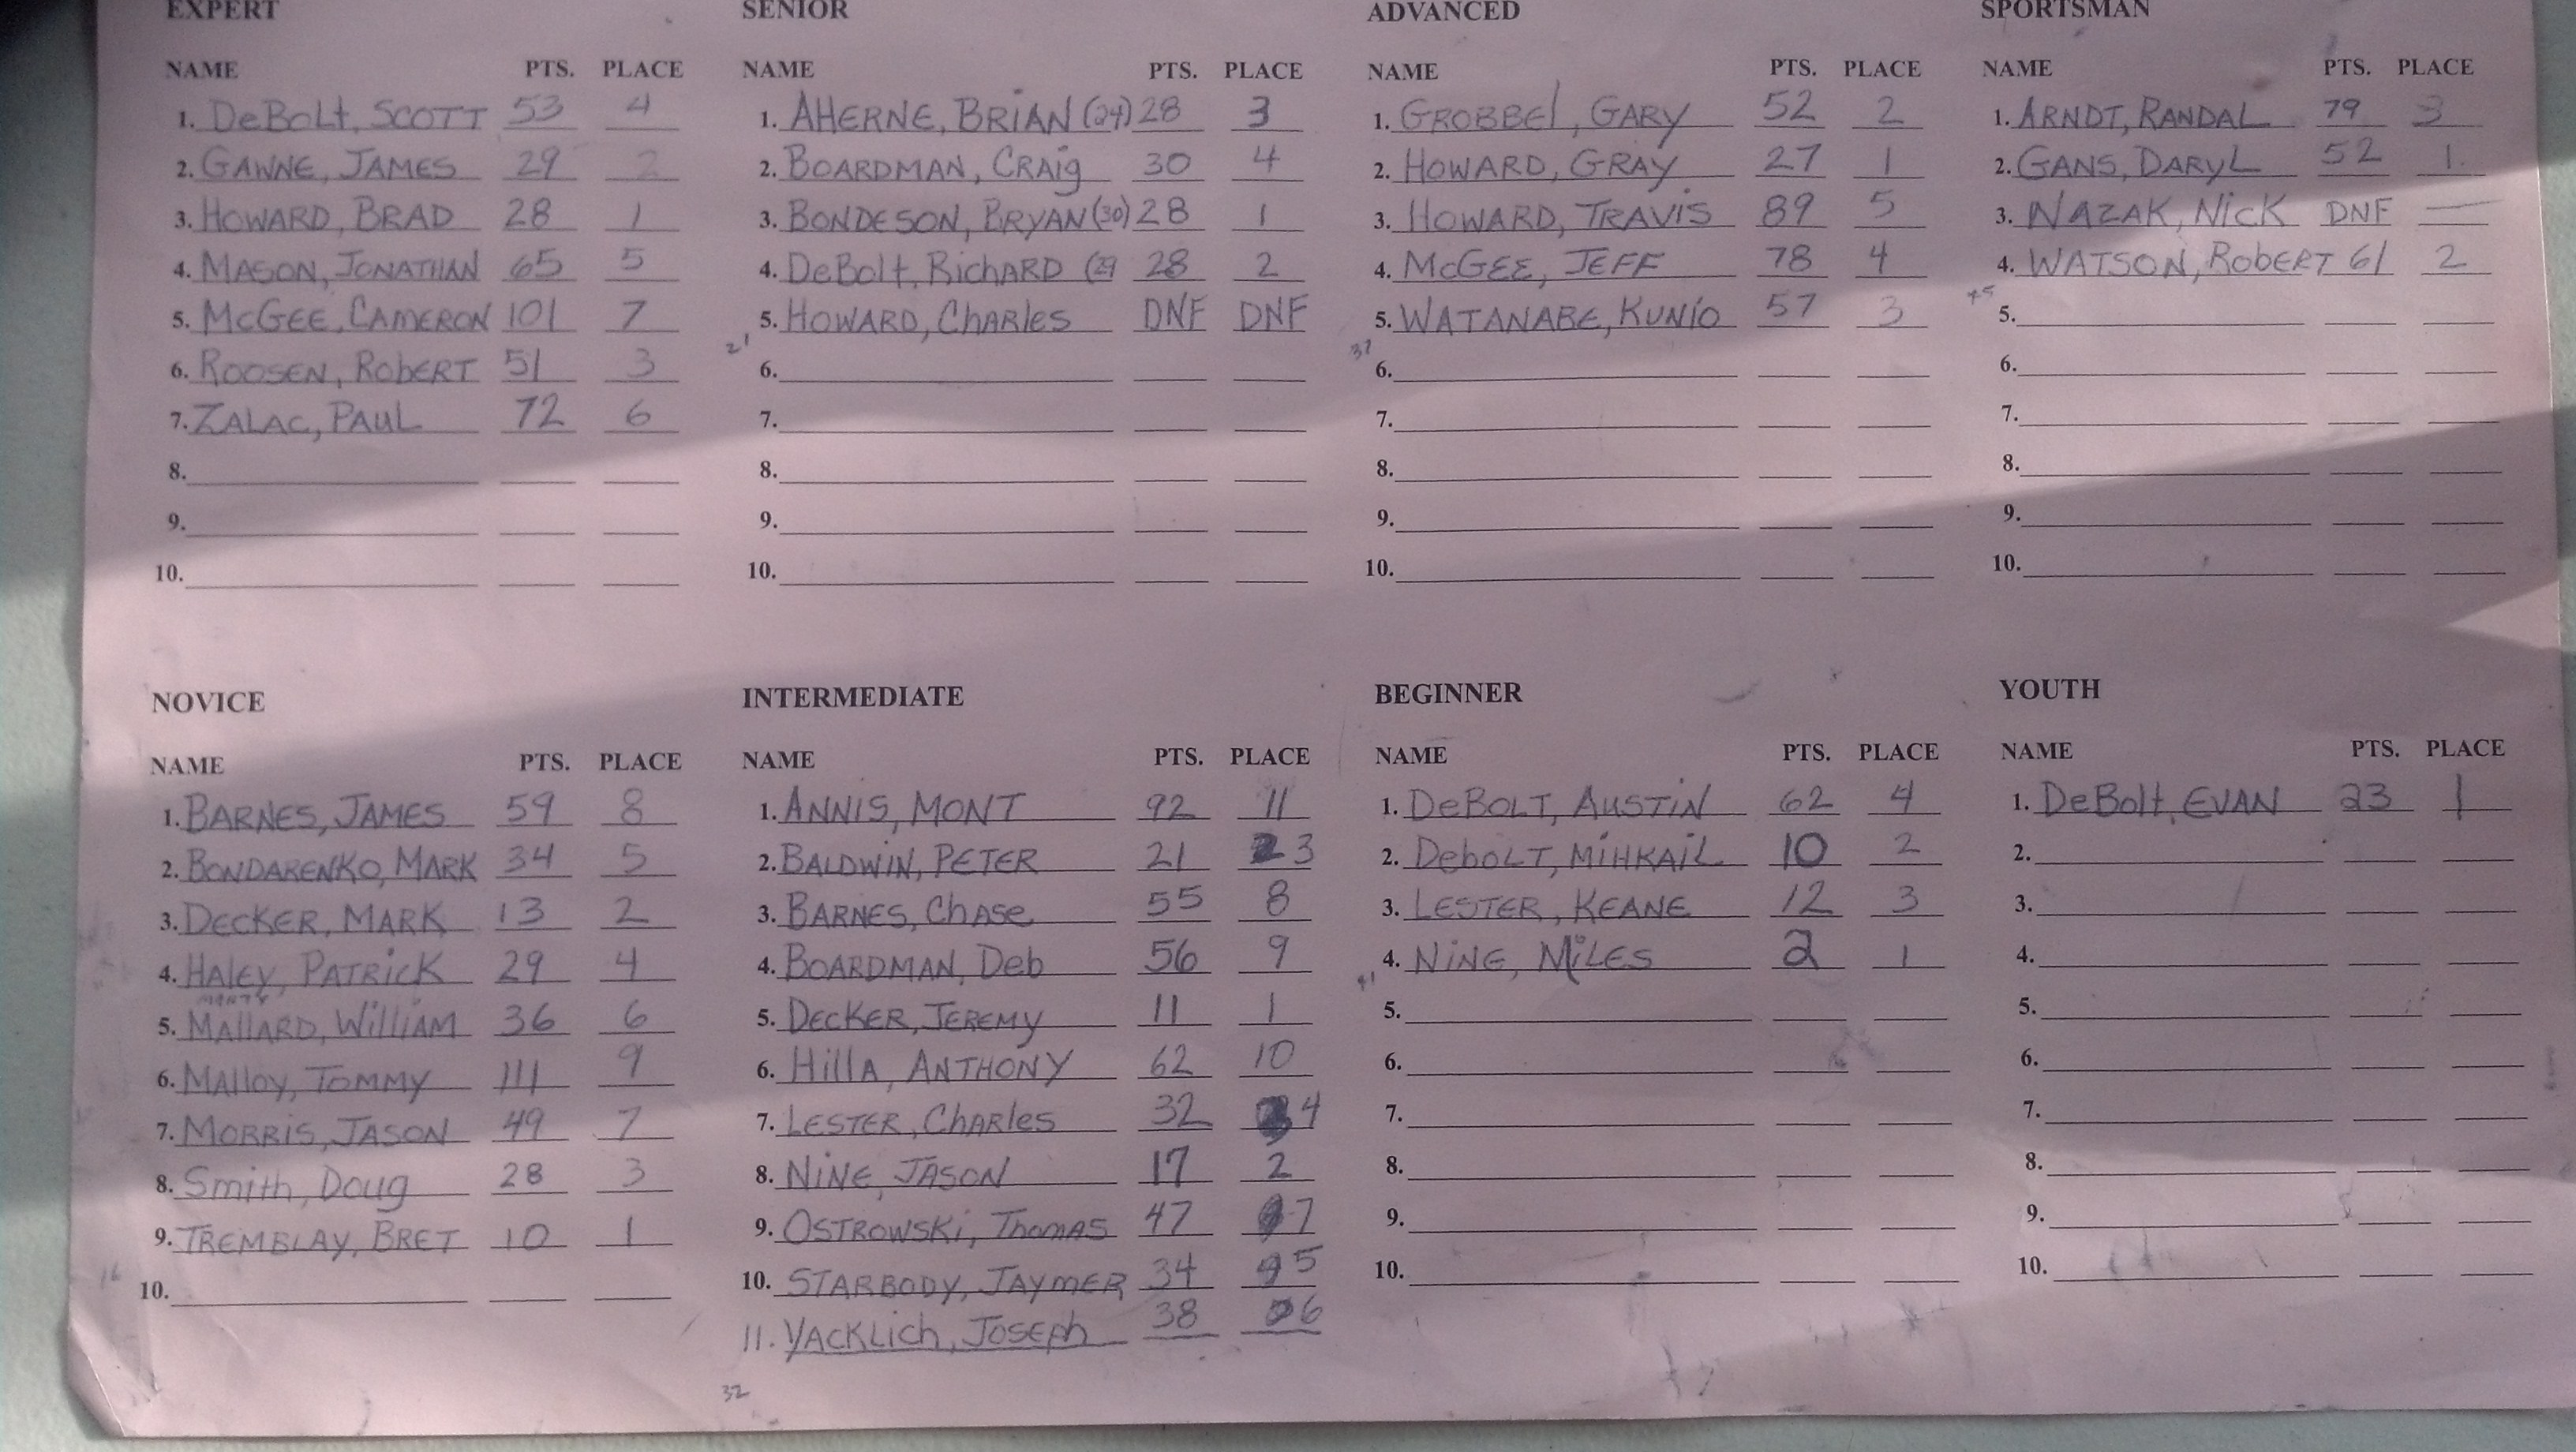 EXPERT
NAME PTS. PLACE
1. DeBolt, SCOTT 53 4
2. GAWNE, JAMES 29 2
3. HOWARD, BRAD 28 1
4. MASON, JONATHAN 65 5
5. McGEE, CAMERON 101 7
6. ROOSEN, RobERT 51 3
7. ZALAC, PAUL 72 6
8.
9.
10.
SENIOR
NAME PTS. PLACE
1. AHERNE, BRIAN (24) 28 3
2. BOARDMAN, CRAig 30 4
3. BONDESON, BRYAN (30) 28 1
4. DeBolt, RicHARD (29 28 2
5. HOWARD, CharlES DNF DNF
21
6.
7.
8.
9.
10.
ADVANCED
NAME PTS. PLACE
1. GROBBEl, GARY 52 2
2. HOWARD, GRAY 27 1
3. HOWARD, TRAVIS 89 5
4. McGEE, JEFF 78 4
5. WATANABE, KUNIO 57 3
37
6.
7.
8.
9.
10.
SPORTSMAN
NAME PTS. PLACE
1. ARNDT, RANDAL 79 3
2. GANS, DARYL 52 1
3. NAZAK, NicK DNF —
4. WATSON, RobERT 61 2
45
5.
6.
7.
8.
9.
10.
NOVICE
NAME PTS. PLACE
1. BARNES, JAMES 59 8
2. BONDARENKO, MARK 34 5
3. DECKER, MARK 13 2
4. HAlEY, PATRicK 29 4
MARTY
5. MAllARD, WilliAM 36 6
6. MAlloy, TOMMY 111 9
7. MORRIS, JASON 49 7
8. Smith, Doug 28 3
9. TREMBLAY, BRET 10 1
16
10.
INTERMEDIATE
NAME PTS. PLACE
1. ANNIS, MONT 92 11
2. BALDWIN, PETER 21 3
3. BARNES, ChASE 55 8
4. BOARDMAN, Deb 56 9
5. DECKER, JEREMY 11 1
6. HillA, ANTHONY 62 10
7. LESTER, CharlES 32 4
8. NINE, JASON 17 2
9. OSTROWSKi, ThomAS 47 7
10. STARBODY, JAYMER 34 5
11. YACKLich, JOSEPh 38 6
32
BEGINNER
NAME PTS. PLACE
1. DeBOLT, AUSTIN 62 4
2. DeboLT, MIHKAIL 10 2
3. LESTER, KEANE 12 3
4. NINE, MILES 2 1
41
5.
6.
7.
8.
9.
10.
YOUTH
NAME PTS. PLACE
1. DeBolt, EVAN 23 1
2.
3.
4.
5.
6.
7.
8.
9.
10.